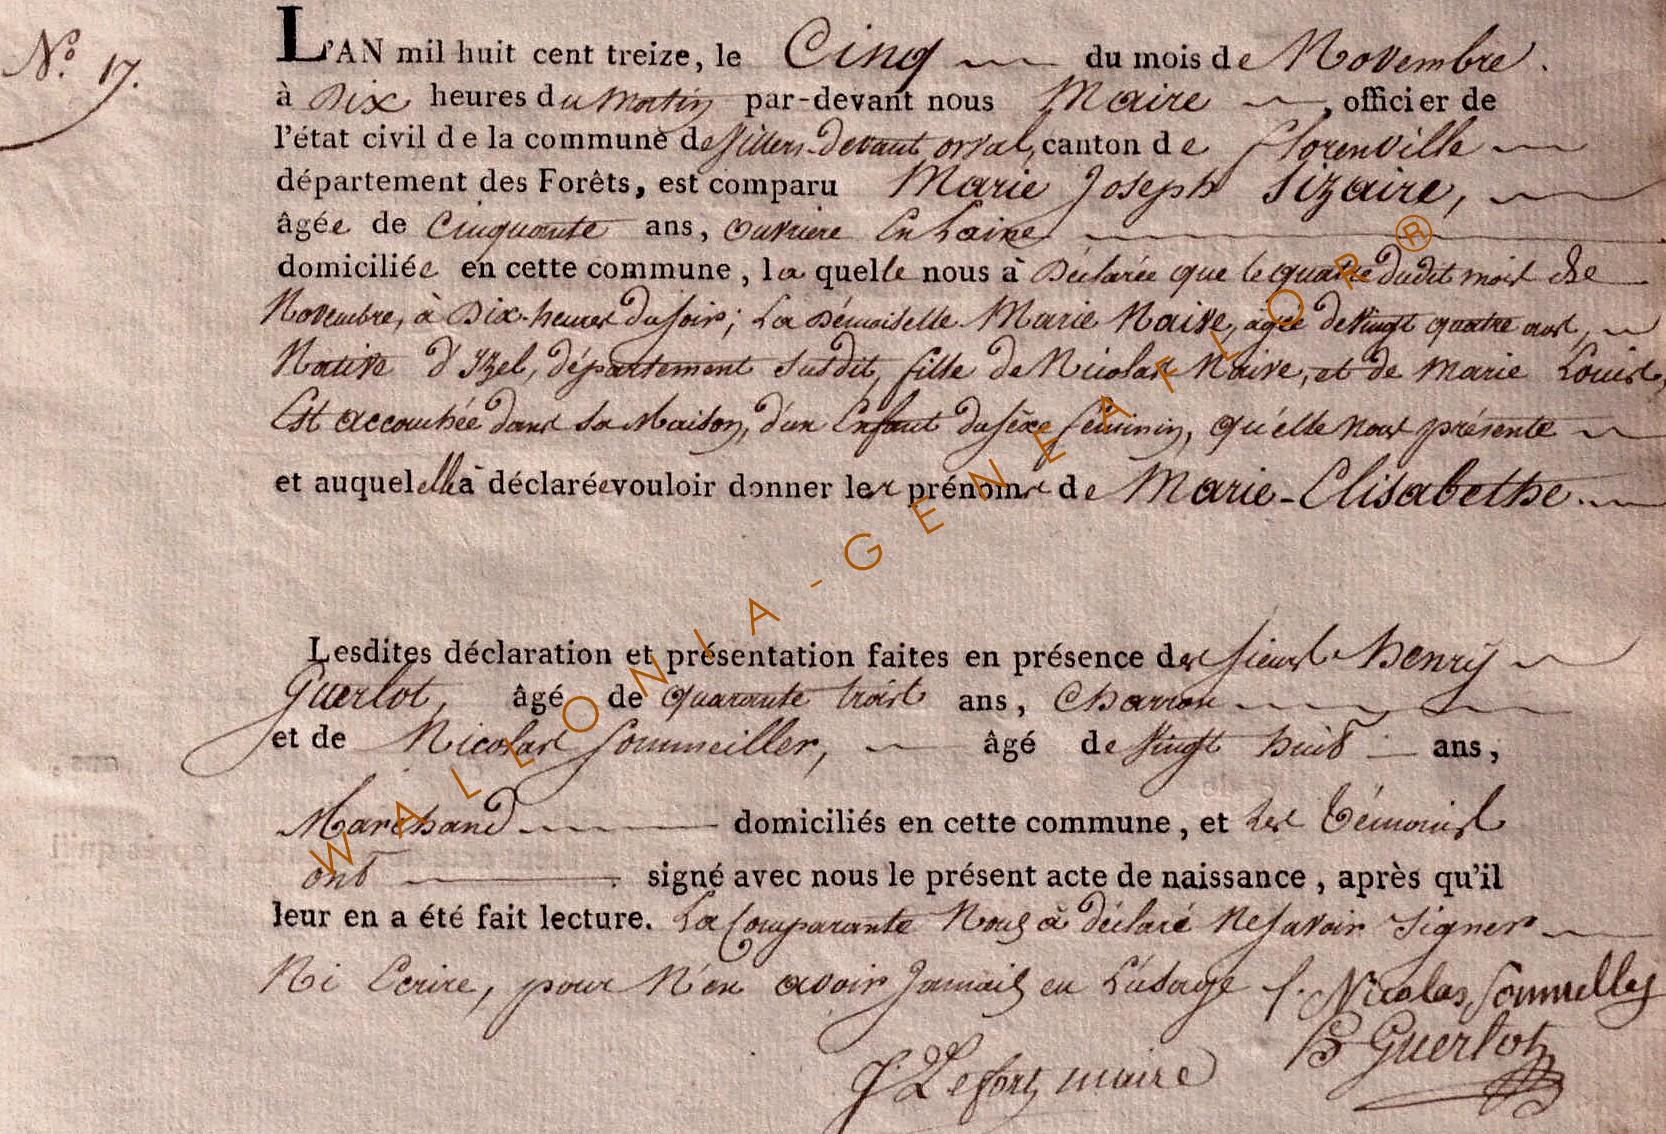 N.o 17.
L'AN mil huit cent treize, le Cinq du mois de Novembre.
à Dix heures du Matin par-devant nous Maire, officier de
l'état civil de la commune de Villers-devant orval, canton de florenville
département des Forêts, est comparu Marie Joseph Sizaire,
âgée de Cinquante ans, ouvriere En Laine
domiciliée en cette commune, la quelle nous à Déclarée que le quatre dudit mois de
Novembre, à Dix-heures du soir; La Démoiselle Marie Naive, agée de vingt quatre ans,
Native d'Izel, département susdit, fille de Nicolas Naive, et de Marie Louis,
Est accouchée dans sa Maison, d'un Enfant du sèxe féminin, qu'elle nous présente
et auquel elle à déclarée vouloir donner les prénoms de Marie-Elisabethe.
Lesdites déclaration et présentation faites en présence des sieurs henry
Guerlot, âgé de quarante trois ans, Charron
et de Nicolas Sommeiller, âgé de vingt huit ans,
Marchand domiciliés en cette commune, et les témoins
ont signé avec nous le présent acte de naissance, après qu'il
leur en a été fait lecture. La Comparante Nous à déclaré Ne savoir signer
Ni Ecrire, pour N'en avoir Jamais eu L'usage Nicolas Sommelles
H Guerlot
J Lefort maire
WALLONIA-GENEAFLOR®